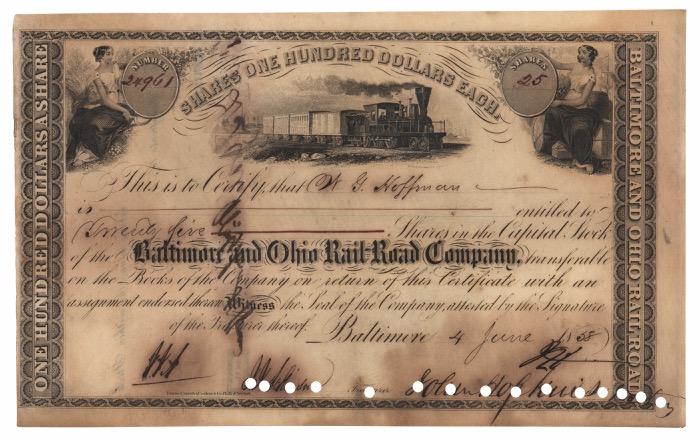 NUMBER
24961
SHARES ONE HUNDRED DOLLARS EACH.
SHARES
25
ONE HUNDRED DOLLARS A SHARE
BALTIMORE AND OHIO RAIL-ROAD
This is to Certify, that W G Hoffman
is entitled to
Twenty five Shares in the Capital Stock
of the Baltimore and Ohio Rail-Road Company, transferable
on the Books of the Company on return of this Certificate with an
assignment endorsed thereon Witness the Seal of the Company, attested by the Signature
of the Treasurer thereof. Baltimore 4 June 1858
Treasurer